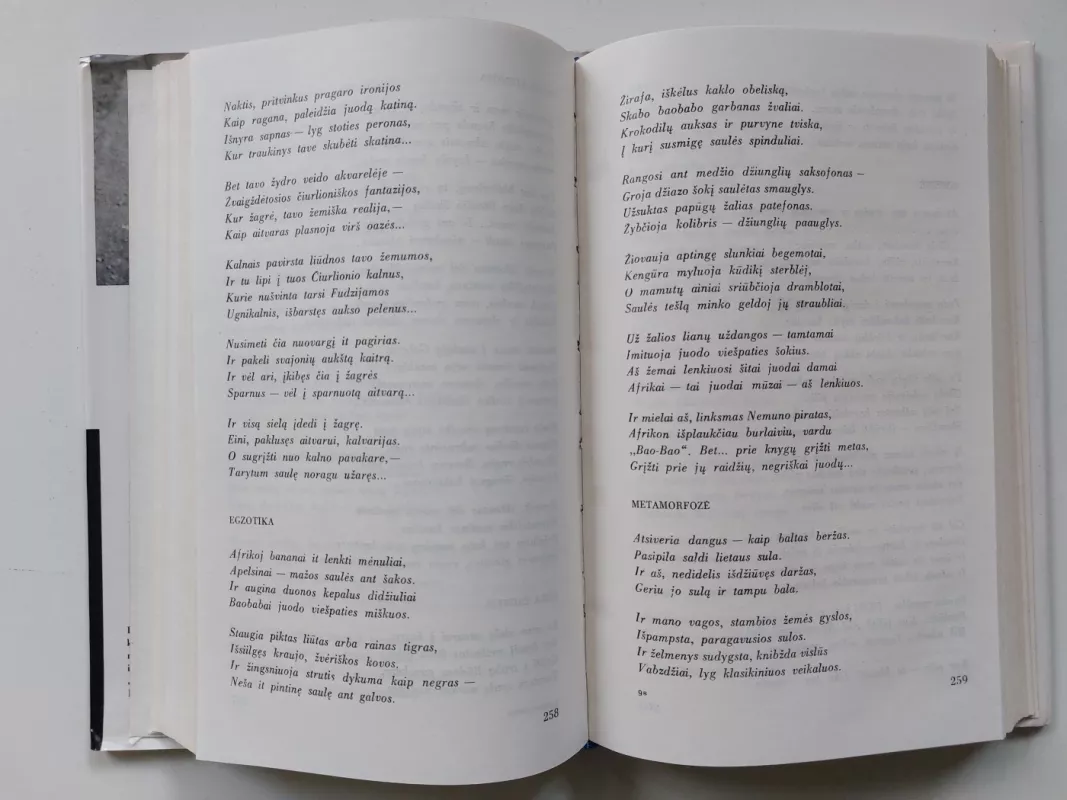 Naktis, pritvinkus pragaro ironijos
Kaip ragana, paleidžia juodą katiną.
Išnyra sapnas — lyg stoties peronas,
Kur traukinys tave skubėti skatina...
Bet tavo žydro veido akvarelėje —
Žvaigždėtosios čiurlioniškos fantazijos,
Kur žagrė, tavo žemiška realija, —
Kaip aitvaras plasnoja virš oazės...
Kalnais pavirsta liūdnos tavo žemumos,
Ir tu lipi į tuos Čiurlionio kalnus,
Kurie nušvinta tarsi Fudzijamos
Ugnikalnis, išbarstęs aukso pelenus...
Nusimeti čia nuovargį it pagirias.
Ir pakeli svajonių aukštą kaitrą.
Ir vėl ari, įkibęs čia į žagrės
Sparnus — vėl į sparnuotą aitvarą...
Ir visą sielą įdedi į žagrę.
Eini, paklusęs aitvarui, kalvarijas.
O sugrįžti nuo kalno pavakare, —
Tarytum saulę noragu užaręs...
EGZOTIKA
Afrikoj bananai it lenkti mėnuliai,
Apelsinai — mažos saulės ant šakos.
Ir augina duonos kepalus didžiuliai
Baobabai juodo viešpaties miškuos.
Staugia piktas liūtas arba rainas tigras,
Išsiilgęs kraujo, žvėriškos kovos.
Ir žingsniuoja strutis dykuma kaip negras —
Neša it pintinę saulę ant galvos.
258
Žirafa, iškėlus kaklo obeliską,
Skabo baobabo garbanas žvaliai.
Krokodilų auksas ir purvyne tviska,
Į kurį susmigę saulės spinduliai.
Rangosi ant medžio džiunglių saksofonas —
Groja džiazo šokį saulėtas smauglys.
Užsuktas papūgų žalias patefonas.
Žybčioja kolibris — džiunglių paauglys.
Žiovauja aptingę slunkiai begemotai,
Kengūra myluoja kūdikį sterblėj,
O mamutų ainiai sriūbčioja dramblotai,
Saulės tešlą minko geldoj jų straubliai.
Už žalios lianų uždangos — tamtamai
Imituoja juodo viešpaties šokius.
Aš žemai lenkiuosi šitai juodai damai
Afrikai — tai juodai mūzai — aš lenkiuos.
Ir mielai aš, linksmas Nemuno piratas,
Afrikon išplaukčiau burlaiviu, vardu
„Bao-Bao“. Bet... prie knygų grįžti metas,
Grįžti prie jų raidžių, negriškai juodų...
METAMORFOZĖ
Atsiveria dangus — kaip baltas beržas.
Pasipila saldi lietaus sula.
Ir aš, nedidelis išdžiūvęs daržas,
Geriu jo sulą ir tampu bala.
Ir mano vagos, stambios žemės gyslos,
Išpampsta, paragavusios sulos.
Ir želmenys sudygsta, knibžda vislūs
Vabzdžiai, lyg klasikiniuos veikaluos.
9*
259